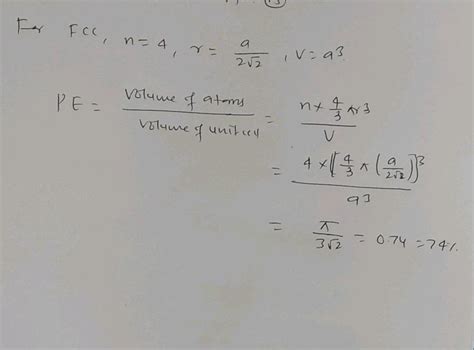 For FCC, n = 4, r = a/2√2, V = a3
PE = Volume of atoms / Volume of unit cell = n x 4/3 πr3 / V
= 4 x [4/3 π (a/2√2)]3 / a3
= π/3√2 = 0.74 = 74%